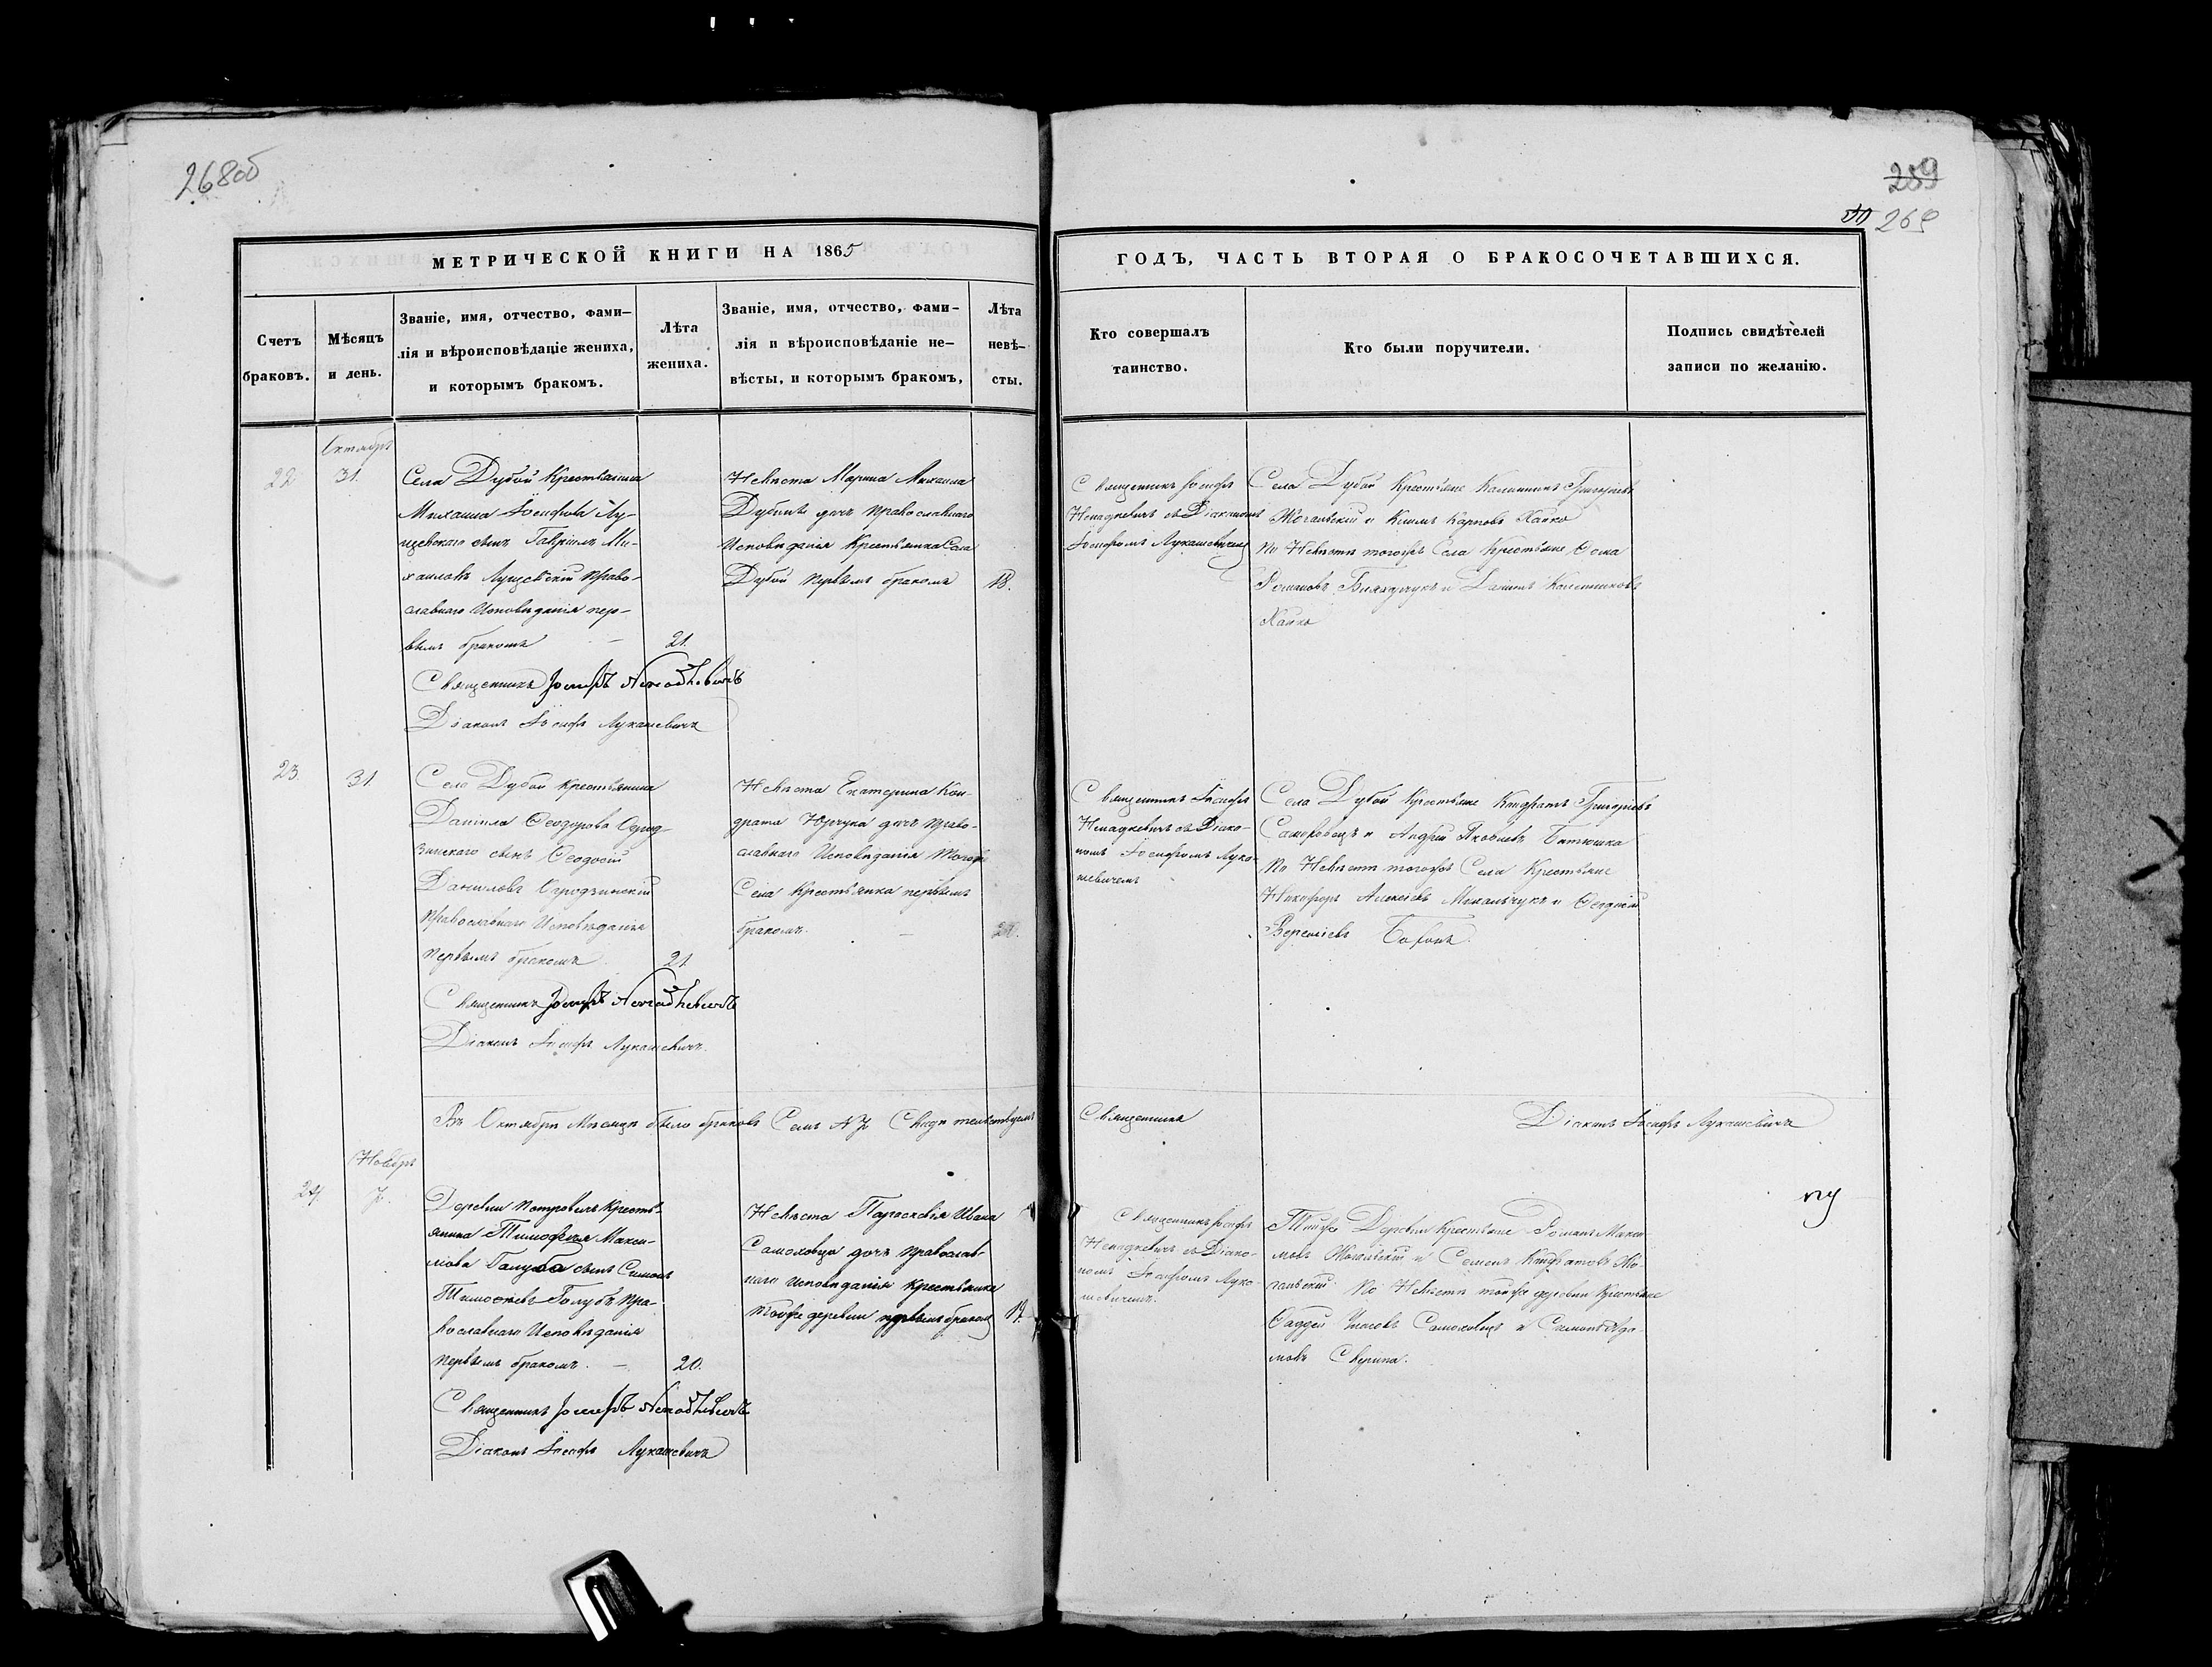 268об
259
269
МЕТРИЧЕСКОЙ КНИГИ НА 1865
ГОДЪ, ЧАСТЬ ВТОРАЯ О БРАКОСОЧЕТАВШИХСЯ.
Счетъ
браковъ.
Мѣсяцъ
и день.
Званіе, имя, отчество, фами–
лія и вѣроисповѣданіе жениха,
и которымъ бракомъ.
Лѣта
жениха.
Званіе, имя, отчество, фами–
лія и вѣроисповѣданіе не–
вѣсты, и которымъ бракомъ,
Лѣта
невѣ–
сты.
Кто совершалъ
таинство.
Кто были поручители.
Подпись свидѣтелей
записи по желанію.
Октябрь
22
31.
Села Дубой Крестьянина
Михаила Іосифова Лу-
щевскаго сынъ Гавріилъ Ми-
хаиловъ Лущевскій Право-
славнаго Исповѣданія пер-
вымъ бракомъ
21.
Священникъ Іосифъ Ненадкевичъ
Діаконъ Іосифъ Лукашевичъ
Невѣста Марина Михаила
дочь Православнаго
Исповѣданія Крестьянка Села
Дубой первымъ бракомъ
18.
Священникъ Іосифъ
Ненадкевичъ съ Діакономъ
Іосифомъ Лукашевичемъ
Села Дубой Крестьяне Григоріевъ
и Климъ Карповъ Хайко
По Невѣстѣ тогожъ Села Крестьяне
Романовъ и
Хайко
23.
31.
Села Дубой Крестьянина
Даніила Ѳеодорова Огрод-
зинскаго сынъ Ѳеодосій
Даниловъ Огродзинскій
Православнаго Исповѣданія
первымъ бракомъ
21
Священникъ Іосифъ Ненадкевичъ
Діаконъ Іосифъ Лукашевичъ.
Невѣста Екатерина Кон-
драта Юрчука дочь Право-
славнаго Исповѣданія Тогожъ
Села Крестьянка первымъ
бракомъ.
Священникъ Іосифъ
Ненадкевичъ съ Діако-
номъ Іосифомъ Лука-
шевичемъ
Села Дубой Крестьяне Кондратъ Григоріевъ
Самоховецъ и Андрей Яковлевъ
По Невѣстѣ тогожъ Села Крестьяне
Никифоръ Алексѣевъ Михальчукъ и
Въ Октябрѣ Мѣсяцѣ было браковъ Семь № 7. Свидѣтельствуемъ
Священникъ
Діаконъ Іосифъ Лукашевичъ
Ноябрь
24.
7.
Деревни Петровичъ Кресть-
янина Тимофея Макси-
мова Голуба сынъ Симонъ
Тимоѳеевъ Голубъ Пра-
вославнаго Исповѣданія
первымъ бракомъ.
20.
Священникъ Іосифъ Ненадкевичъ
Діаконъ Іосифъ Лукашевичъ
Невѣста Параскевія Ивана
Самоховца дочь Православ-
наго Исповѣданія Крестьянка
тойже деревни первымъ бракомъ
19.
Священникъ Іосифъ
Ненадкевичъ съ Діако-
номъ Іосифомъ Лука-
шевичемъ.
Тойже Деревни Крестьяне Романъ Макси-
мовъ и Семенъ Кондратовъ
По Невѣстѣ тойже деревни Крестьяне
Ѳаддей Самоховецъ и Симонъ Ада-
мовъ